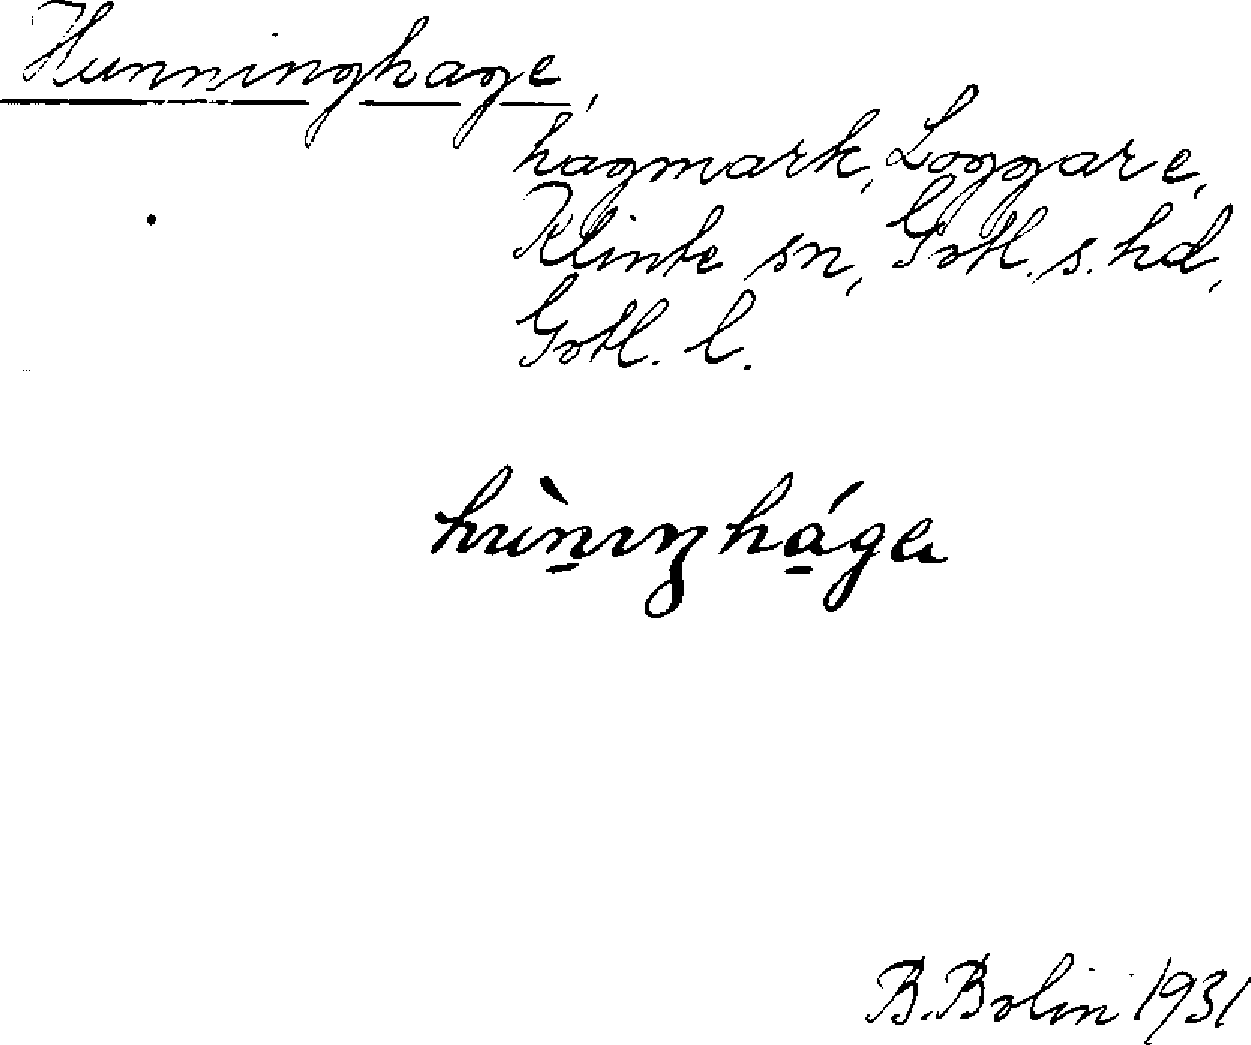 Hunninghage,
hagmark, Loggare,
Klinte sn, Gotl. s. hd,
Gotl. l.
hùn̲ıŋhá̲gɐ
B. Bolin 1931